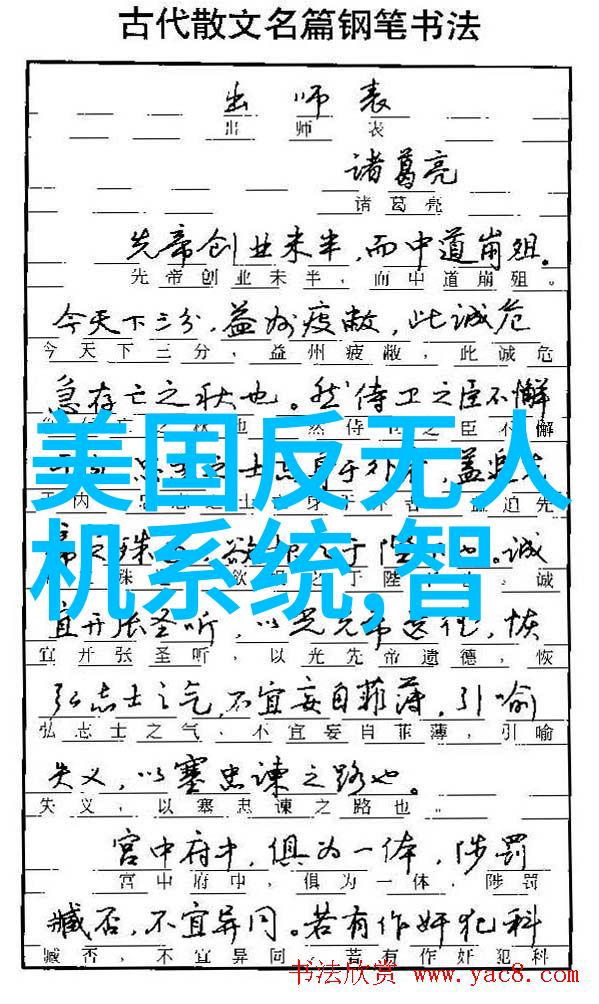 古代散文名篇钢笔书法
出师表
出师表
诸葛亮
诸葛亮
先帝创业未半,而中道崩殂。
先帝创业未半,而中道崩殂。
今天下三分,益州疲敝,此诚危
今天下三分,益州疲敝,此诚危
急存亡之秋也。然侍卫之臣不懈
也 然侍 之臣不懈
美国反无人
身于外 盖追先
于内 士 身于外者 盖追先
机系统,智
帝 殊 欲 于陛 也。诚
殊 欲 之于陛 诚
宜开张圣听,以光先帝遗德,恢
宜开张圣听,以光先帝遗德,恢
弘志士之气,不宜妄自菲薄,引喻
弘志士之气,不宜妄自菲薄,引喻
失义,以塞忠谏之路也。
失义,以塞忠谏之路也。
宫中府中,俱为一体,陟罚
宫中府中,俱为一体,陟罚
臧否,不宜异同。若有作奸犯科
臧否,不宜异同。若有作奸犯科
书法欣赏 www.yac8.com